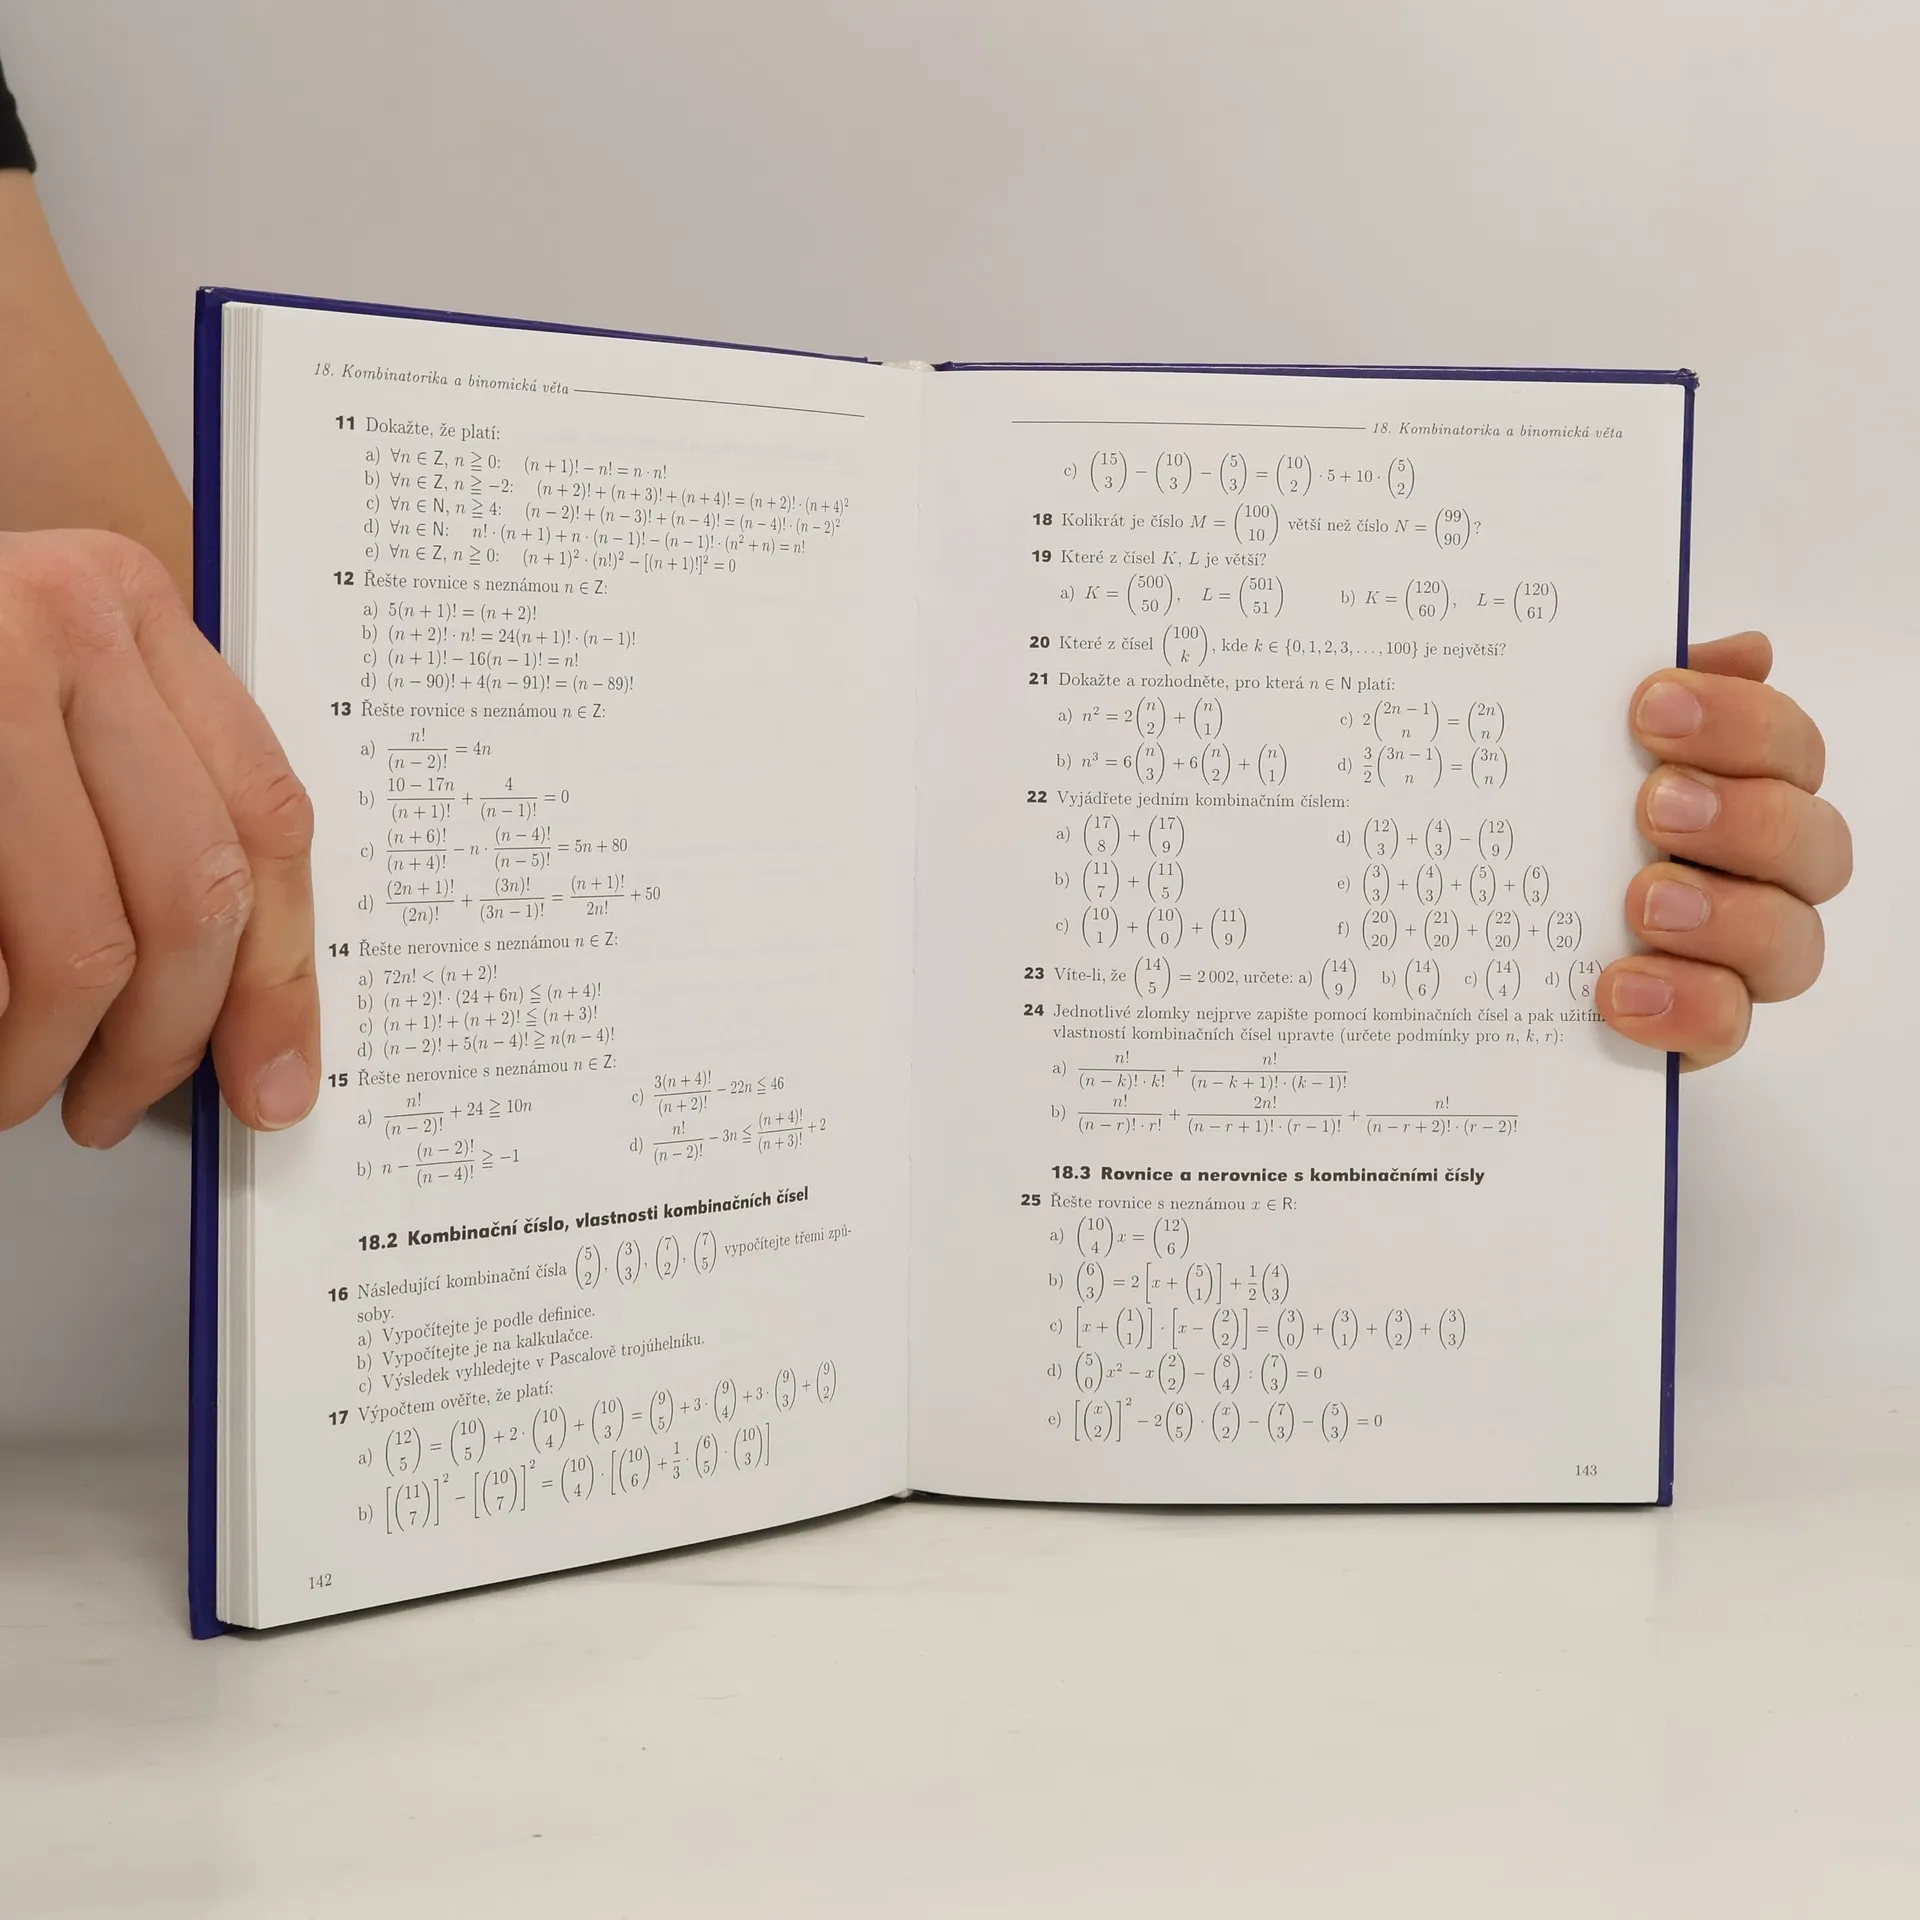 18. Kombinatorika a binomická věta
11 Dokažte, že platí:
a) ∀n ∈ Z, n ≧ 0: (n + 1)! − n! = n · n!
b) ∀n ∈ Z, n ≧ −2: (n + 2)! + (n + 3)! + (n + 4)! = (n + 2)! · (n + 4)²
c) ∀n ∈ N, n ≧ 4: (n − 2)! + (n − 3)! + (n − 4)! = (n − 4)! · (n − 2)²
d) ∀n ∈ N: n! · (n + 1) + n · (n − 1)! − (n − 1)! · (n² + n) = n!
e) ∀n ∈ Z, n ≧ 0: (n + 1)² · (n!)² − [(n + 1)!]² = 0
12 Řešte rovnice s neznámou n ∈ Z:
a) 5(n + 1)! = (n + 2)!
b) (n + 2)! · n! = 24(n + 1)! · (n − 1)!
c) (n + 1)! − 16(n − 1)! = n!
d) (n − 90)! + 4(n − 91)! = (n − 89)!
13 Řešte rovnice s neznámou n ∈ Z:
a) n!/(n − 2)! = 4n
b) (10 − 17n)/(n + 1)! + 4/(n − 1)! = 0
c) (n + 6)!/(n + 4)! − n · (n − 4)!/(n − 5)! = 5n + 80
d) (2n + 1)!/(2n)! + (3n)!/(3n − 1)! = (n + 1)!/2n! + 50
14 Řešte nerovnice s neznámou n ∈ Z:
a) 72n! < (n + 2)!
b) (n + 2)! · (24 + 6n) ≦ (n + 4)!
c) (n + 1)! + (n + 2)! ≦ (n + 3)!
d) (n − 2)! + 5(n − 4)! ≧ n(n − 4)!
15 Řešte nerovnice s neznámou n ∈ Z:
a) n!/(n − 2)! + 24 ≧ 10n c) 3(n + 4)!/(n + 2)! − 22n ≦ 46
b) n − (n − 2)!/(n − 4)! ≧ −1 d) n!/(n − 2)! − 3n ≦ (n + 4)!/(n + 3)! + 2
18.2 Kombinační číslo, vlastnosti kombinačních čísel
16 Následující kombinační čísla (5 2), (3 3), (7 2), (7 5) vypočítejte třemi způ-
soby.
a) Vypočítejte je podle definice.
b) Vypočítejte je na kalkulačce.
c) Výsledek vyhledejte v Pascalově trojúhelníku.
17 Výpočtem ověřte, že platí:
a) (12 5) = (10 5) + 2 · (10 4) + (10 3) = (9 5) + 3 · (9 4) + 3 · (9 3) + (9 2)
b) [(11 7)]² − [(10 7)]² = (10 4) · [(10 6) + 1/3 · (6 5) · (10 3)]
142
18. Kombinatorika a binomická věta
c) (15 3) − (10 3) − (5 3) = (10 2) · 5 + 10 · (5 2)
18 Kolikrát je číslo M = (100 10) větší než číslo N = (99 90)?
19 Které z čísel K, L je větší?
a) K = (500 50), L = (501 51) b) K = (120 60), L = (120 61)
20 Které z čísel (100 k), kde k ∈ {0, 1, 2, 3, ..., 100} je největší?
21 Dokažte a rozhodněte, pro která n ∈ N platí:
a) n² = 2(n 2) + (n 1) c) 2(2n − 1 n) = (2n n)
b) n³ = 6(n 3) + 6(n 2) + (n 1) d) 3/2 (3n − 1 n) = (3n n)
22 Vyjádřete jedním kombinačním číslem:
a) (17 8) + (17 9) d) (12 3) + (4 3) − (12 9)
b) (11 7) + (11 5) e) (3 3) + (4 3) + (5 3) + (6 3)
c) (10 1) + (10 0) + (11 9) f) (20 20) + (21 20) + (22 20) + (23 20)
23 Víte-li, že (14 5) = 2 002, určete: a) (14 9) b) (14 6) c) (14 4) d) (14 8
24 Jednotlivé zlomky nejprve zapište pomocí kombinačních čísel a pak užitím
vlastností kombinačních čísel upravte (určete podmínky pro n, k, r):
a) n!/(n − k)! · k! + n!/(n − k + 1)! · (k − 1)!
b) n!/(n − r)! · r! + 2n!/(n − r + 1)! · (r − 1)! + n!/(n − r + 2)! · (r − 2)!
18.3 Rovnice a nerovnice s kombinačními čísly
25 Řešte rovnice s neznámou x ∈ R:
a) (10 4)x = (12 6)
b) (6 3) = 2[x + (5 1)] + 1/2 (4 3)
c) [x + (1 1)] · [x − (2 2)] = (3 0) + (3 1) + (3 2) + (3 3)
d) (5 0)x² − x(2 2) − (8 4) : (7 3) = 0
e) [(x 2)]² − 2(6 5) · (x 2) − (7 3) − (5 3) = 0
143